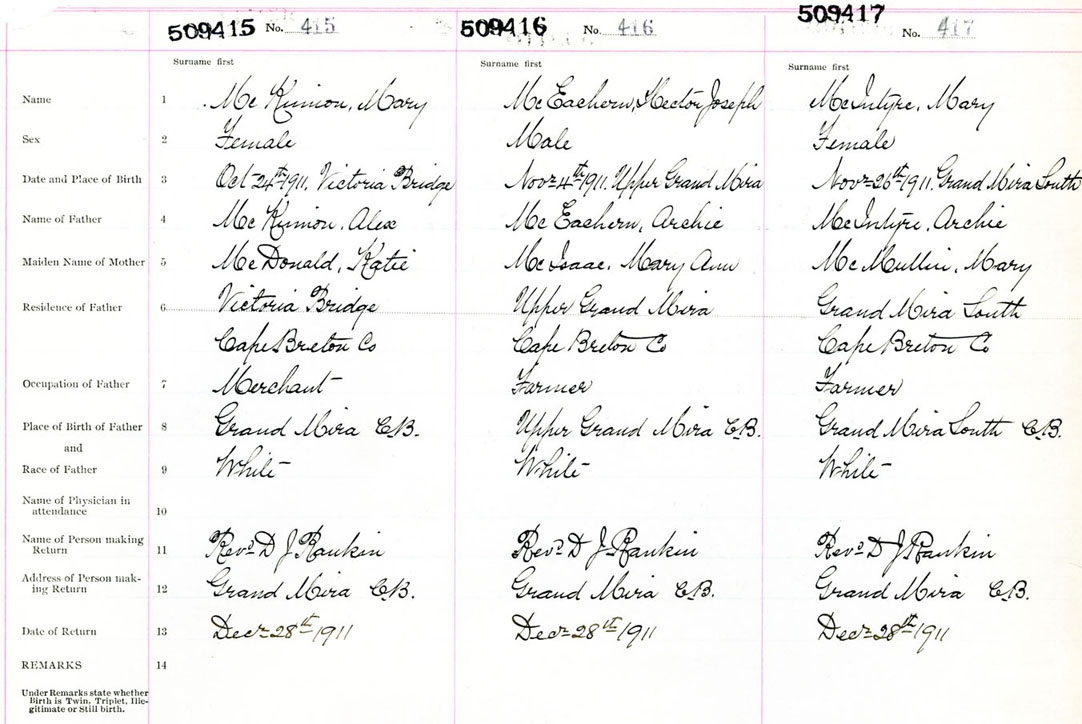 509415 No. 415 509416 No. 416 509417 No. 417
Surname first Surname first Surname first
Name 1 McKinnon, Mary McEachern, Hector Joseph McIntyre, Mary
Sex 2 Female Male Female
Date and Place of Birth 3 Oct 24th 1911, Victoria Bridge Novr 4th 1911, Upper Grand Mira Novr 26th 1911, Grand Mira South
Name of Father 4 McKinnon, Alex McEachern, Archie McIntyre, Archie
Maiden Name of Mother 5 McDonald, Katie McIsaac, Mary Ann McMullin, Mary
Residence of Father 6 Victoria Bridge Upper Grand Mira Grand Mira South
Cape Breton Co Cape Breton Co Cape Breton Co
Occupation of Father 7 Merchant Farmer Farmer
Place of Birth of Father 8 Grand Mira C.B. Upper Grand Mira C.B. Grand Mira South C.B.
and
Race of Father 9 White White White
Name of Physician in
attendance 10
Name of Person making
Return 11 Revd D J Rankin Revd D J Rankin Revd D J Rankin
Address of Person mak-
ing Return 12 Grand Mira C.B. Grand Mira C.B. Grand Mira C.B.
Date of Return 13 Decr 28th 1911 Decr 28th 1911 Decr 28th 1911
REMARKS 14
Under Remarks state whether
Birth is Twin, Triplet, Ille-
gitimate or Still birth.